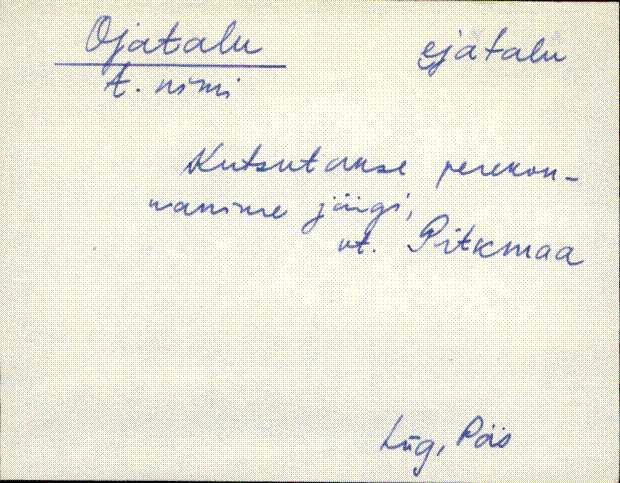 Ojatalu ejatalu
t. nimi
Kutsutakse perekon-
nanime järgi,
vt. Pitkmaa
Lüg, Päs